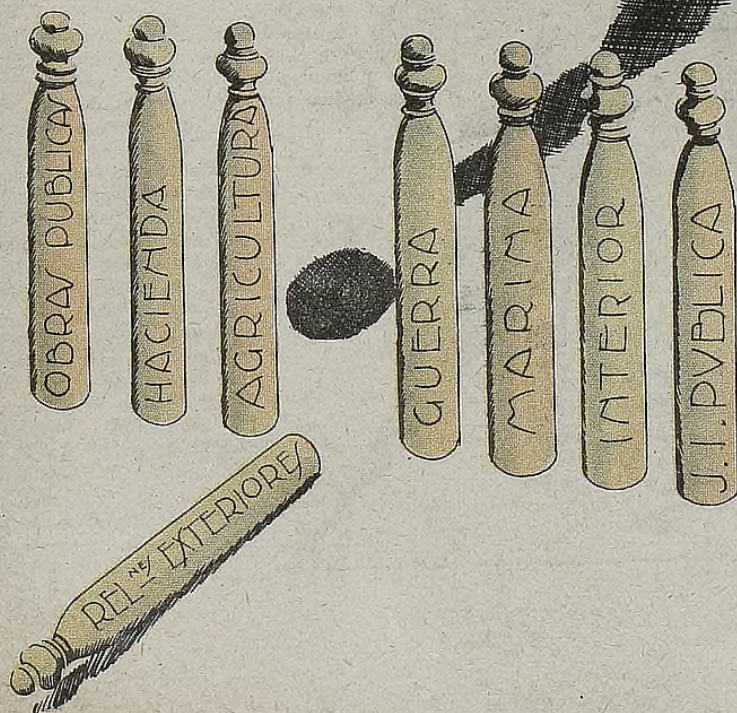 OBRAS PUBLICAS
HACIENDA
AGRICULTURA
GUERRA
MARINA
INTERIOR
J. I. PVBLICA
RELNES EXTERIORES